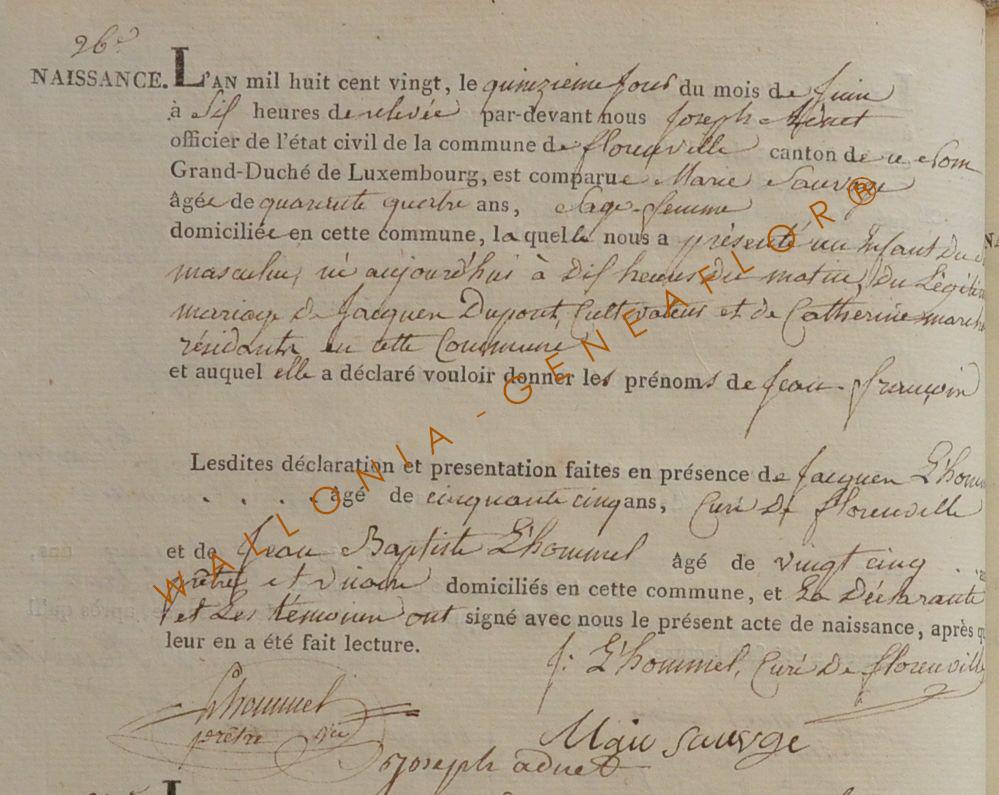 26e
NAISSANCE. L'AN mil huit cent vingt, le quinzieme jour du mois de Juin
à six heures de relevée par-devant nous Joseph Adnet
officier de l'état civil de la commune de florenville canton de ce nom
Grand-Duché de Luxembourg, est comparue Marie Sauvage
âgée de quarante quatre ans, Sage-femme
domiciliée en cette commune, laquelle nous a présenté un Enfant du
masculin, né aujourd'hui à dix heures du matin, du Légitim
mariage de Jacques Dupont, Cultivateur et de Catherine
résidants en cette Commune
et auquel elle a déclaré vouloir donner les prénoms de Jean-françois
Lesdites déclaration et presentation faites en présence de Jacques L'hom
. . . . âgé de cinquante cinq ans, Curé de florenville
et de Jean Baptiste L'hommel âgé de vingt cinq . .
prêtre et vicaire domiciliés en cette commune, et La Déclarante
et Les témoins ont signé avec nous le présent acte de naissance, après q
leur en a été fait lecture.
J: L'hommel, Curé de florenville
Lhommel
prêtre vic
Marie sauvge
Joseph adnet
WALLONIA - GENEAFLOR®